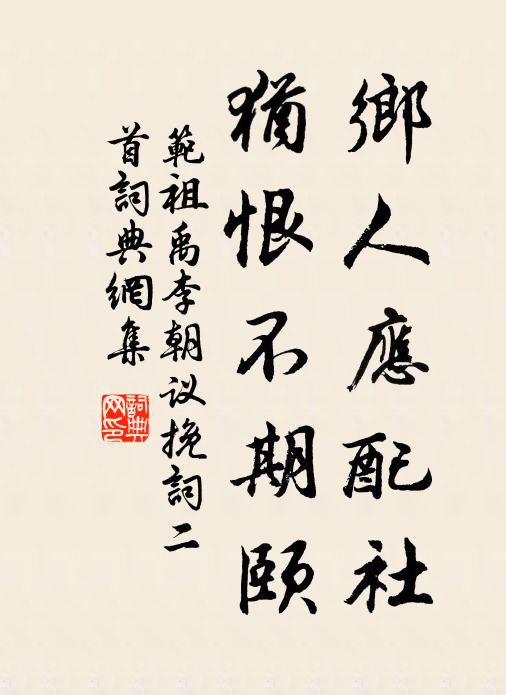 鄉人應配社
猶恨不期頤
範祖禹李朝议挽詞二
首詞典網集
詞典
网印